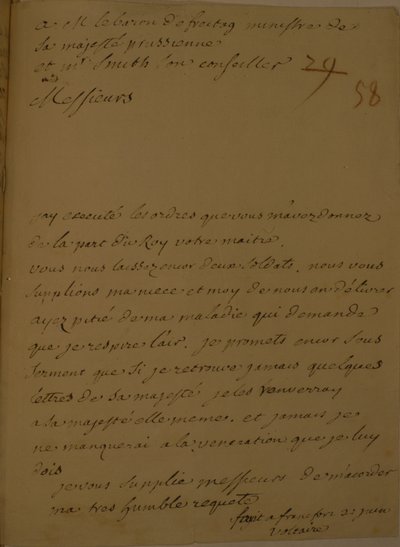 a M le baron de freitag ministre de
sa majesté prussienne
et mr Smith son conseiller 29
58
Messieurs
jay executé les ordres que vous m'avez donnez
de la part du Roy votre maitre.
vous nous laissez encor deux soldats. nous vous
supplions ma niece et moy de nous en délivrer
ayez pitié de ma maladie qui demande
que je respire l'air. je promets encor sous
serment que si je retrouve jamais quelques
lettres de sa majesté je les renverray
a sa majesté elle meme. et jamais je
ne manquerai a la veneration que je luy
dois
je vous supplie messieurs de m'acorder
ma tres humble requete
fait a francfort juin
voltaire